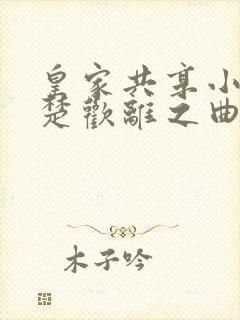 皇家共享小
楚歡離之曲
木子吟